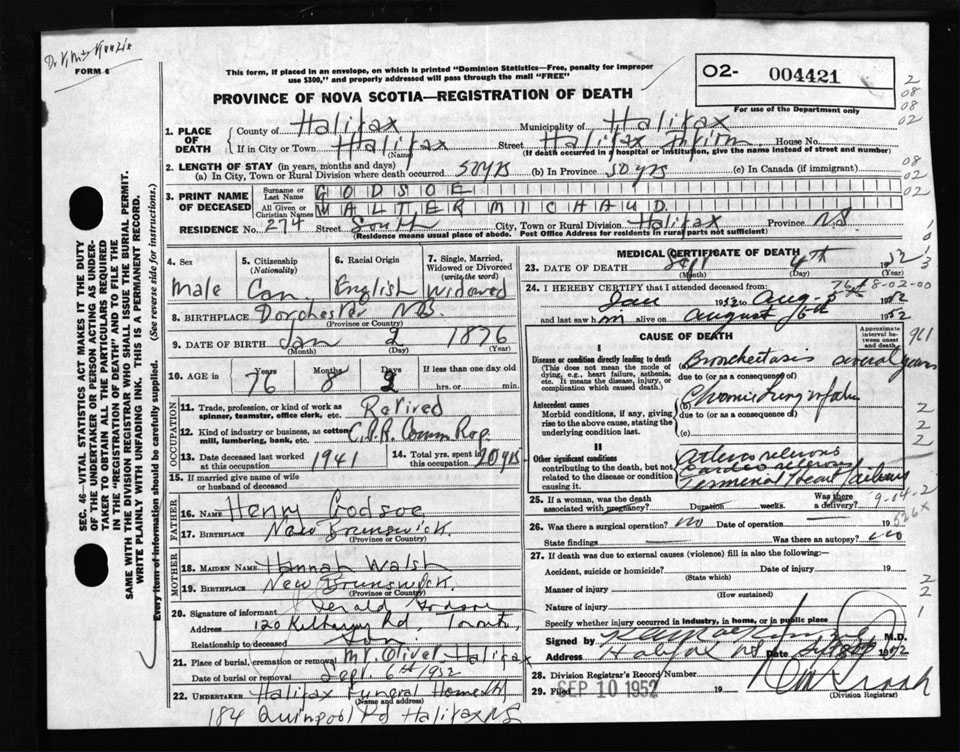 FORM 6
This form, if placed in an envelope, on which is printed "Dominion Statistics—Free, penalty for improper
use $300," and properly addressed will pass through the mail "FREE"
PROVINCE OF NOVA SCOTIA—REGISTRATION OF DEATH
02- 004421
For use of the Department only
2
08
08
02
1. PLACE OF DEATH
County of Halifax Municipality of Halifax
If in City or Town Halifax Street Halifax House No.
(Name) (If death occurred in hospital or institution, give the name instead of street and number)
2. LENGTH OF STAY (in years, months and days)
(a) In City, Town or Rural Division where death occurred 50 yrs (b) In Province 50 yrs (c) In Canada (if immigrant)
08
02
3. PRINT NAME OF DECEASED
Surname or Last Name GODSOE
All Given or Christian Names WALTER MICHAUD
RESIDENCE No. 274 Street South City, Town or Rural Division Halifax Province N.S.
(Residence means usual place of abode. Post Office Address for residents in rural parts not sufficient)
SEC. 46—VITAL STATISTICS ACT MAKES IT THE DUTY
OF THE UNDERTAKER OR PERSON ACTING AS UNDER-
TAKER TO OBTAIN ALL THE PARTICULARS REQUIRED
IN THE "REGISTRATION OF DEATH" AND TO FILE THE
SAME WITH THE DIVISION REGISTRAR WHO SHALL ISSUE THE BURIAL PERMIT.
WRITE PLAINLY WITH UNFADING INK. THIS IS A PERMANENT RECORD.
Every item of information should be carefully supplied. (See reverse side for instructions.)
4. Sex Male
5. Citizenship (Nationality) Can.
6. Racial Origin English
7. Single, Married, Widowed or Divorced (write the word) Widowed
8. BIRTHPLACE Dorchester N.B.
(Province or Country)
9. DATE OF BIRTH Jan 2 1876
(Month) (Day) (Year)
10. AGE in Years 76 Months 8 Days 2 If less than one day old
hrs. or min.
OCCUPATION
11. Trade, profession, or kind of work as spinner, teamster, office clerk, etc. Retired
12. Kind of industry or business, as cotton mill, lumbering, bank, etc. C.P.R. Comm Rep.
13. Date deceased last worked at this occupation 1941
14. Total yrs. spent in this occupation 20 yrs
15. If married give name of wife or husband of deceased
FATHER
16. NAME Henry Godsoe
17. BIRTHPLACE New Brunswick.
(Province or Country)
MOTHER
18. MAIDEN NAME Hannah Walsh
19. BIRTHPLACE New Brunswick.
(Province or Country)
20. Signature of informant Gerald Godsoe
Address 120 Rd, Toronto,
Relationship to deceased Son.
21. Place of burial, cremation or removal Mt. Olivet Halifax
Date of burial or removal Sept. 6th 1952
22. UNDERTAKER Halifax Funeral Home
(Name and address)
184 Quinpool Rd Halifax NS
MEDICAL CERTIFICATE OF DEATH
23. DATE OF DEATH Sept 4th 1952
(Month) (Day) (Year)
24. I HEREBY CERTIFY that I attended deceased from:
Jan 1952 to Aug. 1952
and last saw him alive on August 1952
CAUSE OF DEATH
Approximate interval between onset and death
961
I
Disease or condition directly leading to death
(This does not mean the mode of dying, e.g., heart failure, asthenia, etc. It means the disease, injury, or complication which caused death.)
(a) Bronchectasis several years
due to (or as a consequence of)
Antecedent causes
Morbid conditions, if any, giving rise to the above cause, stating the underlying condition last.
(b) Chronic lung
due to (or as a consequence of)
(c)
II
Other significant conditions
contributing to the death, but not related to the disease or condition causing it.
Terminal Heart failure
25. If a woman, was the death associated with pregnancy? Duration weeks. Was there a delivery?
26. Was there a surgical operation? no Date of operation 19
State findings Was there an autopsy? no
27. If death was due to external causes (violence) fill in also the following:—
Accident, suicide or homicide? Date of injury 19
(State which)
Manner of injury
(How sustained)
Nature of injury
Specify whether injury occurred in industry, in home, or in public place
Signed by M.D.
Address Halifax NS Date 1952
28. Division Registrar's Record Number
29. Filed SEP 10 1952 19
(Division Registrar)